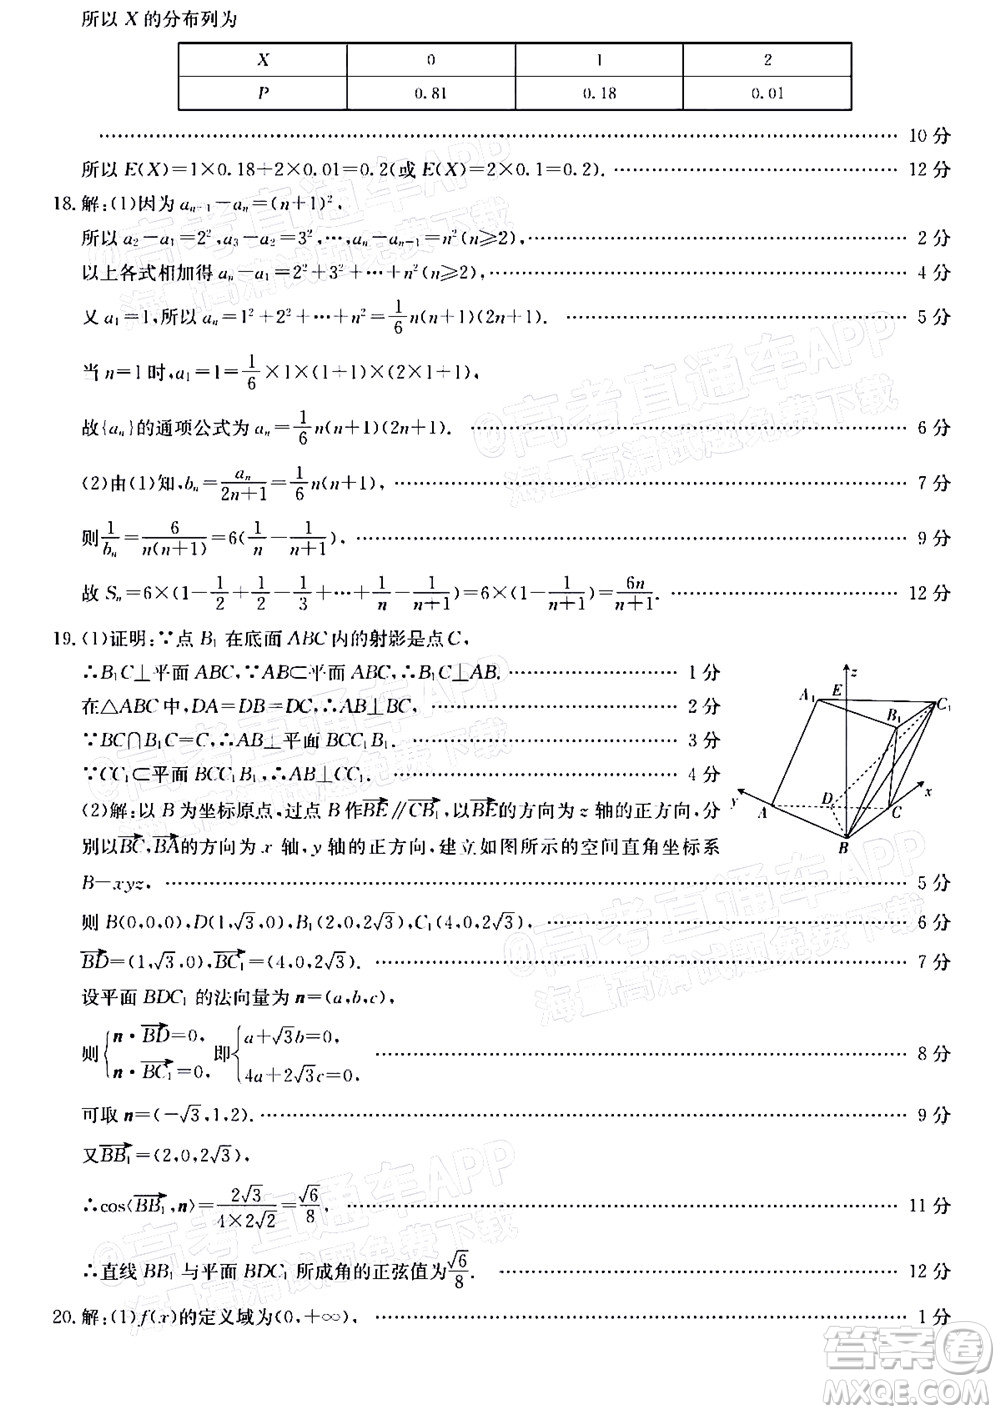 所以 X 的分布列为
X 0 1 2
P 0.81 0.18 0.01
…… 10 分
所以 E(X)=1×0.18+2×0.01=0.2(或 E(X)=2×0.1=0.2). …… 12 分
18. 解:(1)因为 aₙ₊₁−aₙ=(n+1)²,
所以 a₂−a₁=2²,a₃−a₂=3²,…,aₙ−aₙ₋₁=n²(n≥2), …… 2 分
以上各式相加得 aₙ−a₁=2²+3²+…+n²(n≥2), …… 4 分
又 a₁=1,所以 aₙ=1²+2²+…+n²=1/6 n(n+1)(2n+1). …… 5 分
当 n=1 时,a₁=1=1/6×1×(1+1)×(2×1+1),
故{aₙ}的通项公式为 aₙ=1/6 n(n+1)(2n+1). …… 6 分
(2)由(1)知,bₙ=aₙ/(2n+1)=1/6 n(n+1), …… 7 分
则 1/bₙ=6/(n(n+1))=6(1/n−1/(n+1)), …… 9 分
故 Sₙ=6×(1−1/2+1/2−1/3+…+1/n−1/(n+1))=6×(1−1/(n+1))=6n/(n+1). …… 12 分
19. (1)证明:∵点 B₁ 在底面 ABC 内的射影是点 C,
∴B₁C⊥平面 ABC,∵AB⊂平面 ABC,∴B₁C⊥AB. …… 1 分
在△ABC 中,DA=DB=DC,∴AB⊥BC, …… 2 分
∵BC∩B₁C=C,∴AB⊥平面 BCC₁B₁. …… 3 分
∵CC₁⊂平面 BCC₁B₁,∴AB⊥CC₁. …… 4 分
(2)解:以 B 为坐标原点,过点 B 作 BE∥CB₁,以 BE 的方向为 z 轴的正方向,分
别以 BC,BA 的方向为 x 轴,y 轴的正方向,建立如图所示的空间直角坐标系
B−xyz, …… 5 分
z
A₁ E C₁
B₁
x
y A D C
B
则 B(0,0,0),D(1,√3,0),B₁(2,0,2√3),C₁(4,0,2√3), …… 6 分
BD=(1,√3,0),BC₁=(4,0,2√3). …… 7 分
设平面 BDC₁ 的法向量为 n=(a,b,c),
则{n·BD=0, n·BC₁=0, 即{a+√3b=0, 4a+2√3c=0, …… 8 分
可取 n=(−√3,1,2). …… 9 分
又 BB₁=(2,0,2√3),
∴cos⟨BB₁,n⟩=2√3/(4×2√2)=√6/8, …… 11 分
∴直线 BB₁ 与平面 BDC₁ 所成角的正弦值为 √6/8. …… 12 分
20. 解:(1)f(x)的定义域为(0,+∞), …… 1 分
@高考直通车APP
海量高清试题免费下载
@高考直通车APP
海量高清试题免费下载
@高考直通车APP
海量高清试题免费下载
@高考直通车APP
海量高清试题免费下载
答案卷
MXQE.COM